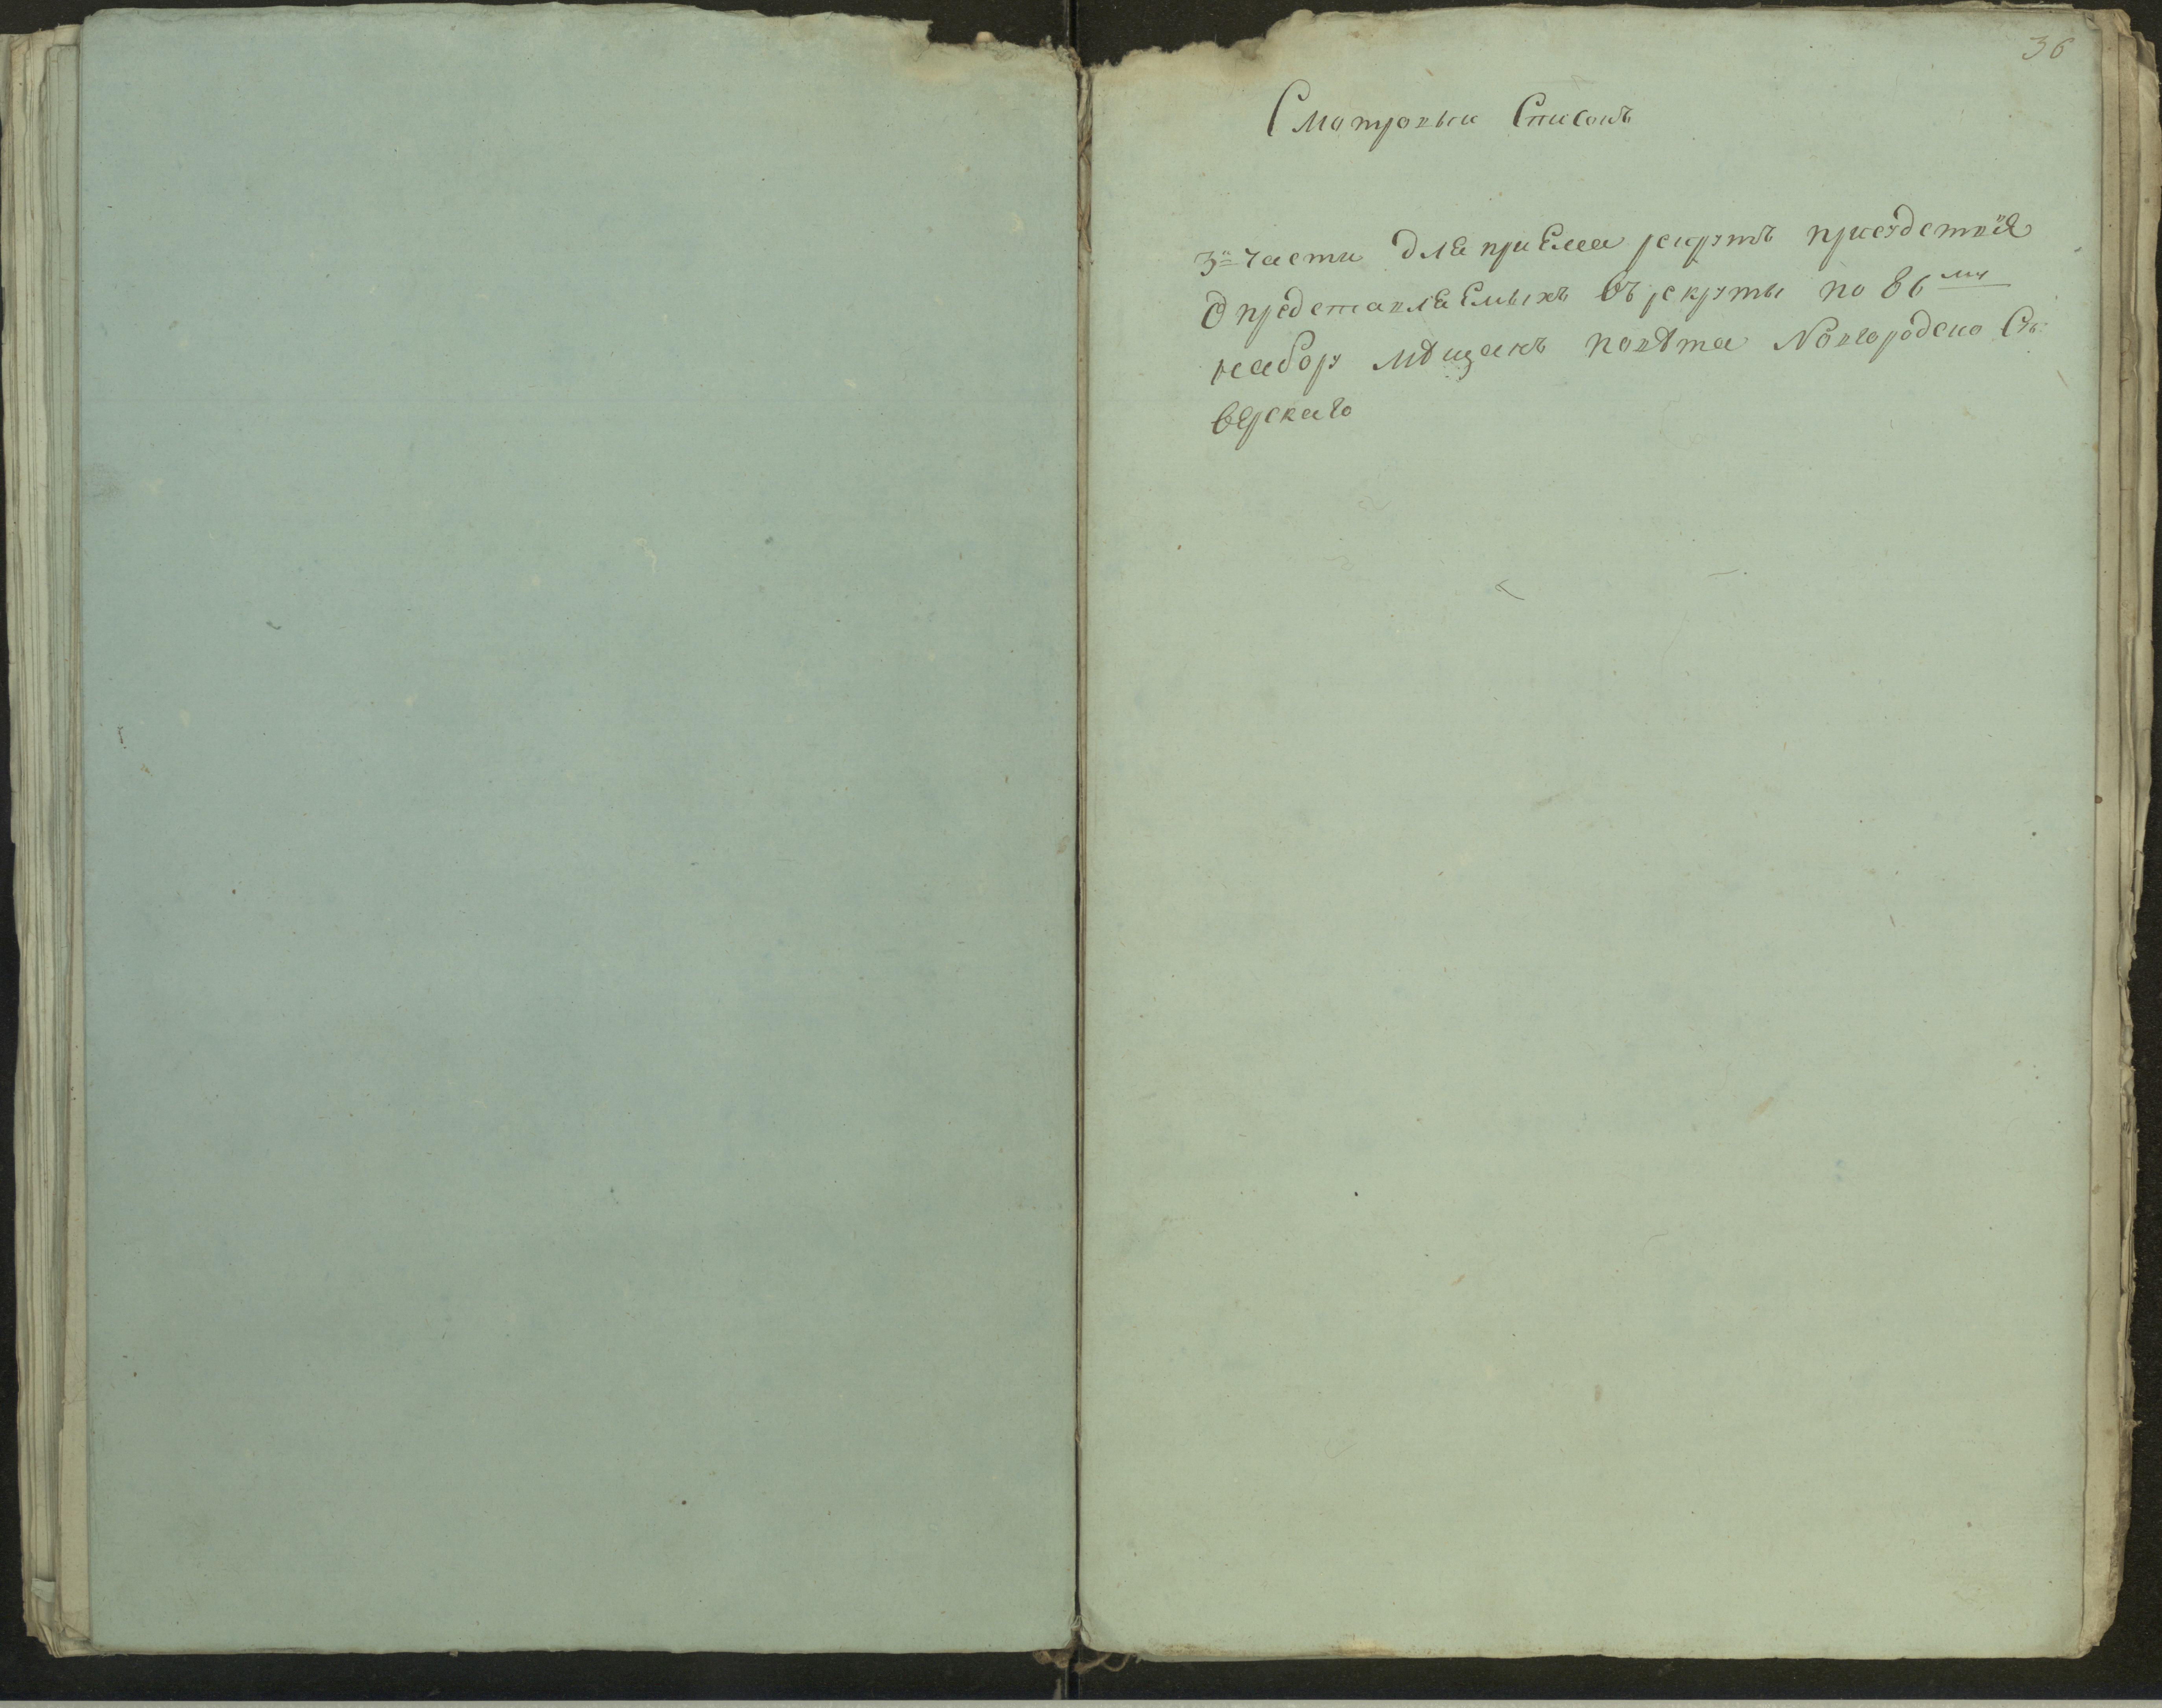 36
Сматровыи Списокъ
3й части для приема рекрутъ присудствия
О представляемыхъ въ рекруты по 86му
набору мѣщанъ повѣта Новгородско Сѣ:
верскаго